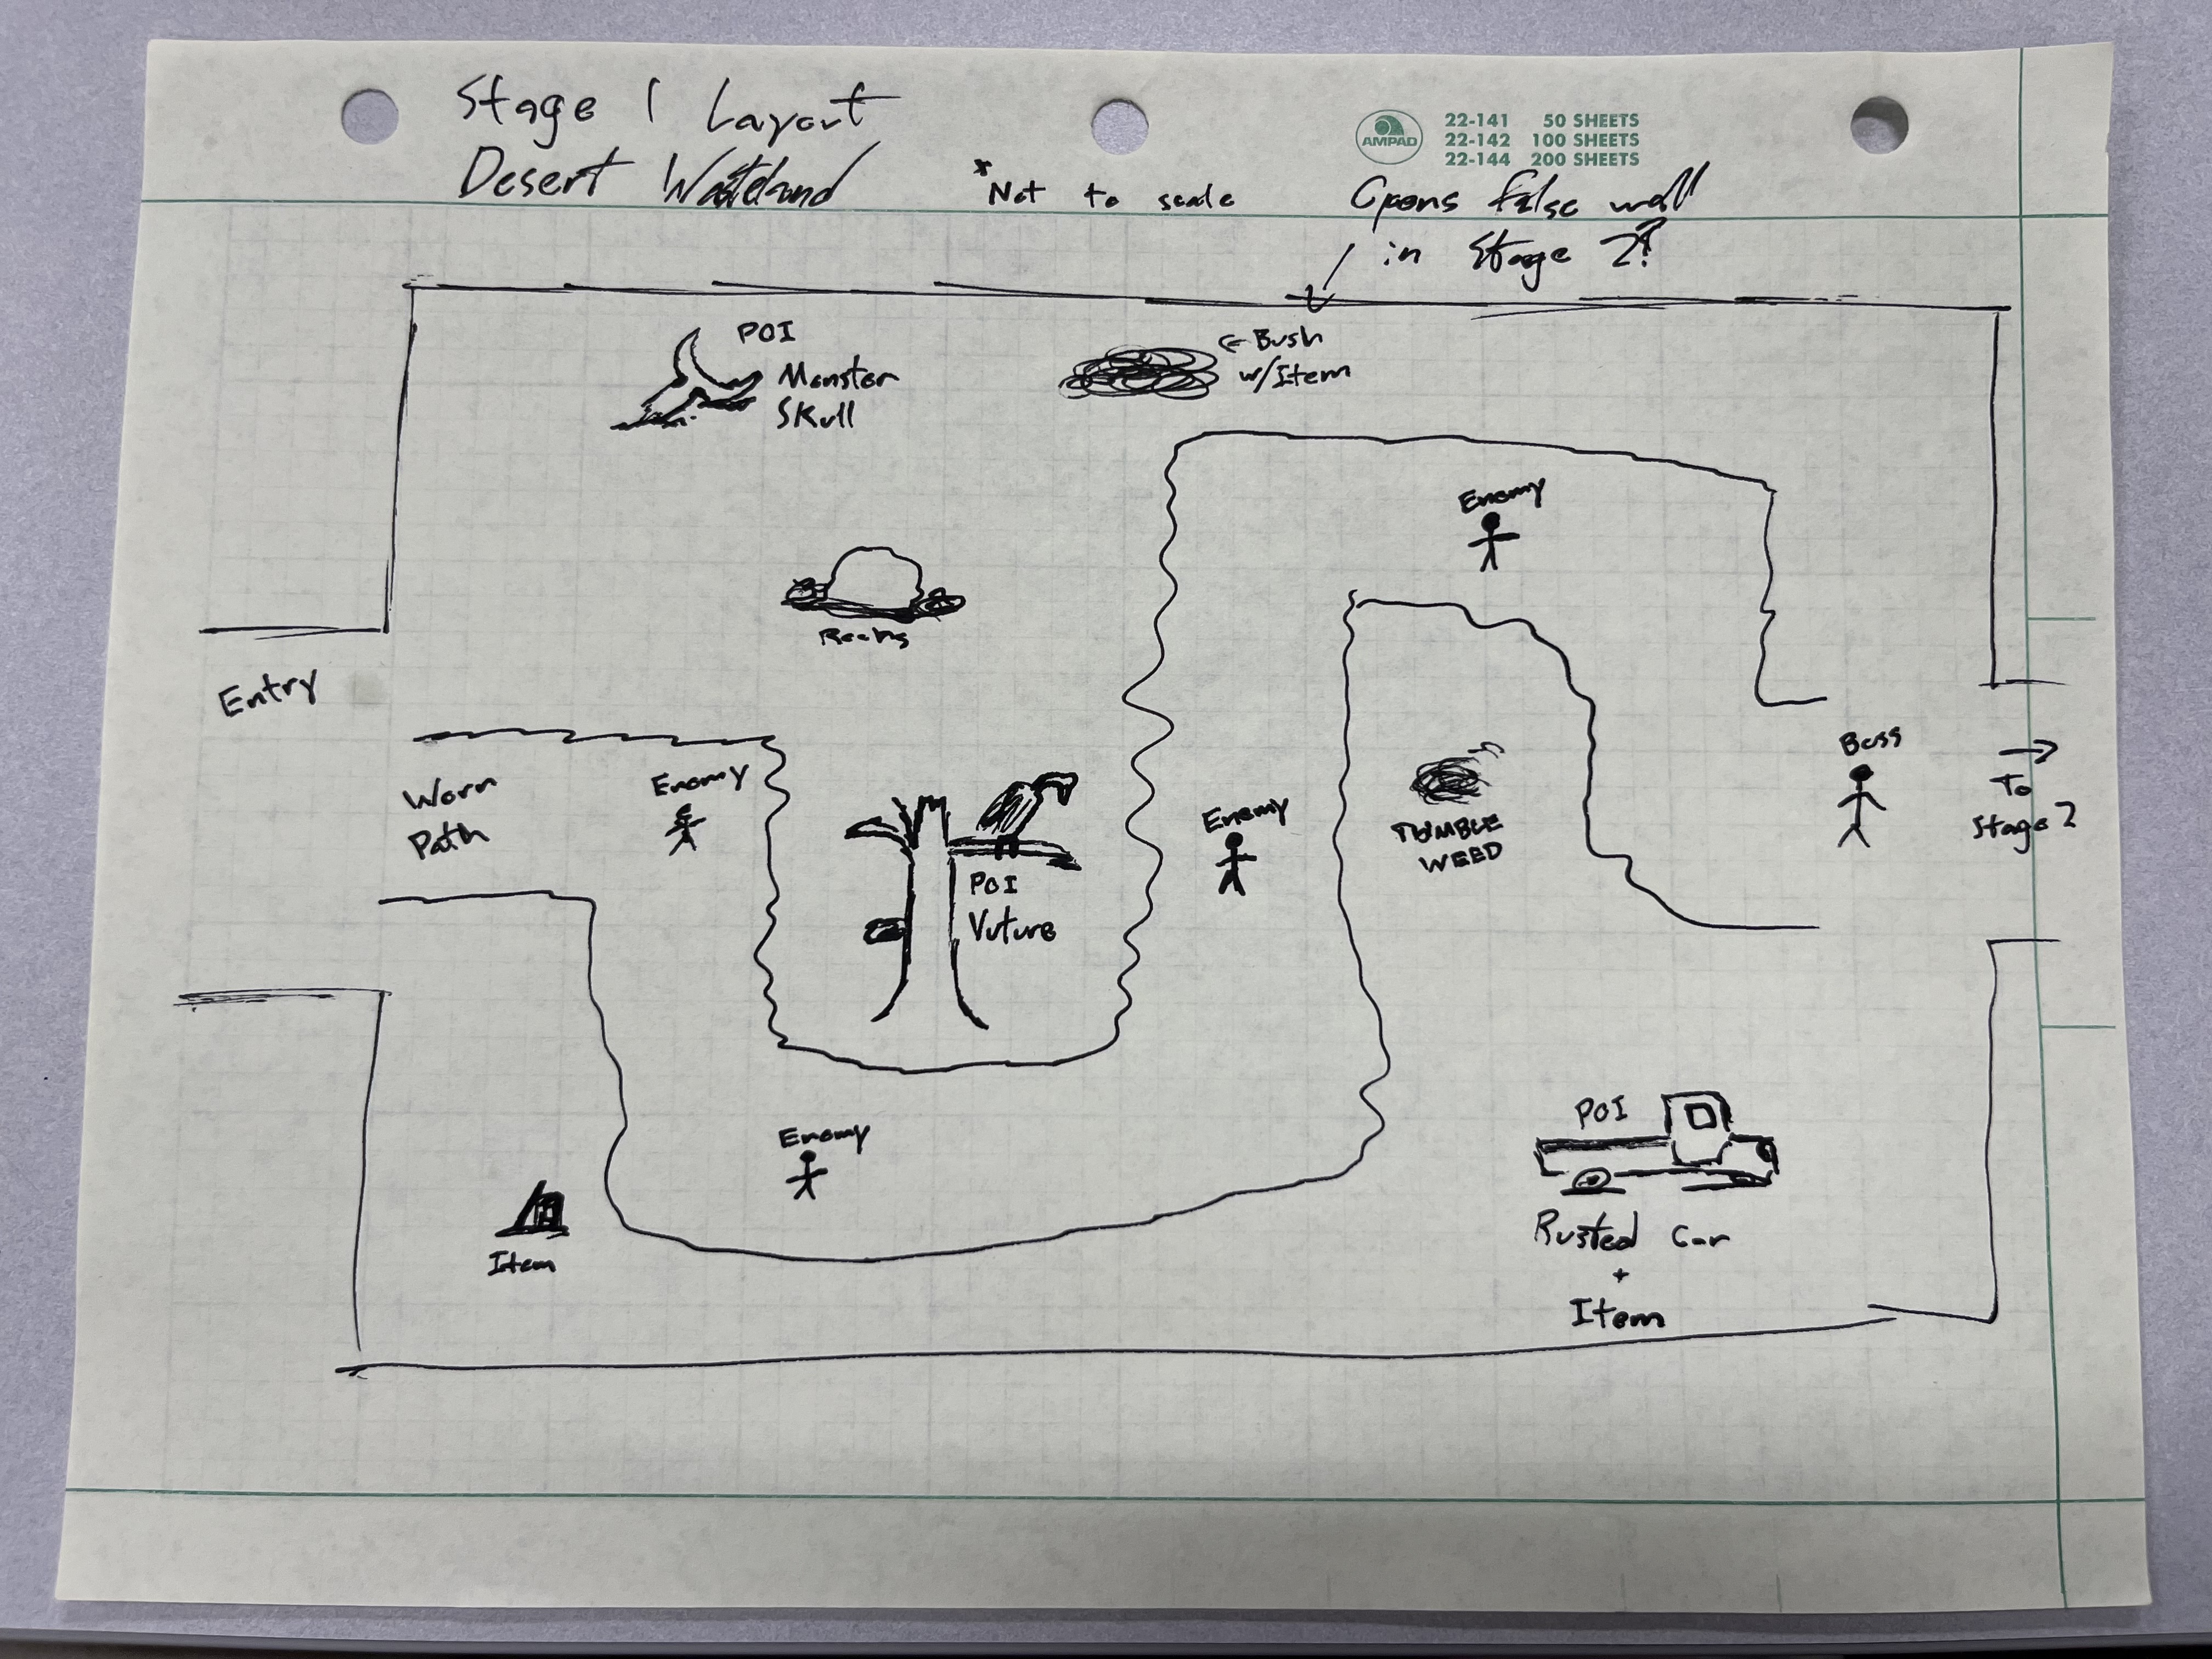 Stage 1 Layout
Desert Wasteland
*Not to scale
AMPAD
22-141 50 SHEETS
22-142 100 SHEETS
22-144 200 SHEETS
Opens false wall
in Stage 2?
POI
Monster
Skull
← Bush
w/Item
Enemy
Rocks
Entry
Worn
Path
Enemy
POI
Vuture
Enemy
TUMBLE
WEED
Boss
→
To
Stage 2
Enemy
Item
POI
Rusted Car
+
Item